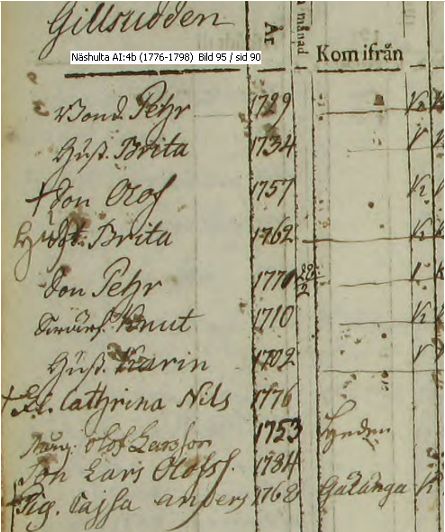 Gillsudden
År
månad
Kom ifrån
Näshulta AI:4b (1776-1798) Bild 95 / sid 90
Bond. Pehr 1729
Hust. Brita 1734
+ Son Olof 1757
Hust. Brita 1762
Son Pehr 1770
Knut 1710
Hust. Karin 1702
+ Cathrina Nils 1776
Olof Larsson 1753 Heden
Son Lars Olofss. 1784
+ Pig. Cajsa Anders 1768